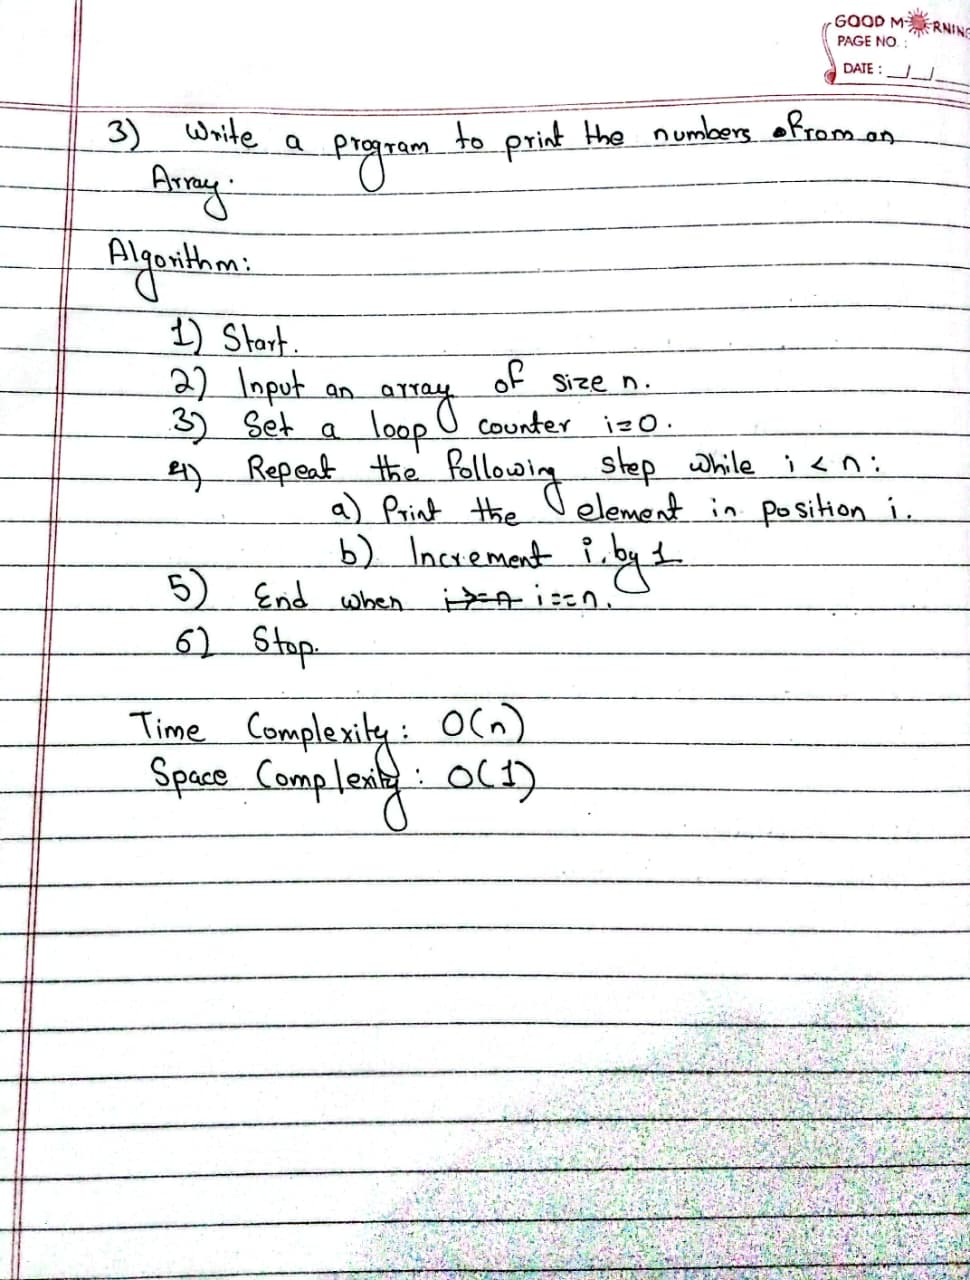 GOOD MORNING
PAGE NO. :
DATE : / /
3) Write a program to print the numbers from an
Array.
Algorithm:
1) Start.
2) Input an array of size n.
3) Set a loop counter i=0.
4) Repeat the following step while i < n:
a) Print the element in position i.
b) Increment i by 1
5) End when i>=n i==n.
6) Stop.
Time Complexity: O(n)
Space Complexity: O(1)